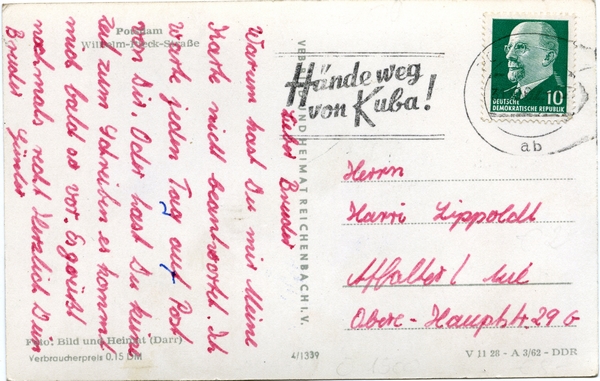 Potsdam
Wilhelm-Pieck-Straße
Lieber Bruder
Warum hast Du mir Meine
Karte nicht beantwortet. Ich
warte jeden Tag auf Post
von Dir. Oder hast Du keine
Zeit zum Schreiben es kommt
mich bald so vor. Es grüsst
nochmals recht Herzlich Dein
Bruder Günter
Foto: Bild und Heimat (Darr)
Verbraucherpreis 0,15 DM
VEB BILD UND HEIMAT REICHENBACH I. V.
4/1339
Hände weg
von Kuba!
10
DEUTSCHE
DEMOKRATISCHE REPUBLIK
ab
Herrn
Harri Lippoldt
Affalter / Aue
Obere-Hauptstr. 29 G
V 11 28 - A 3/62 - DDR